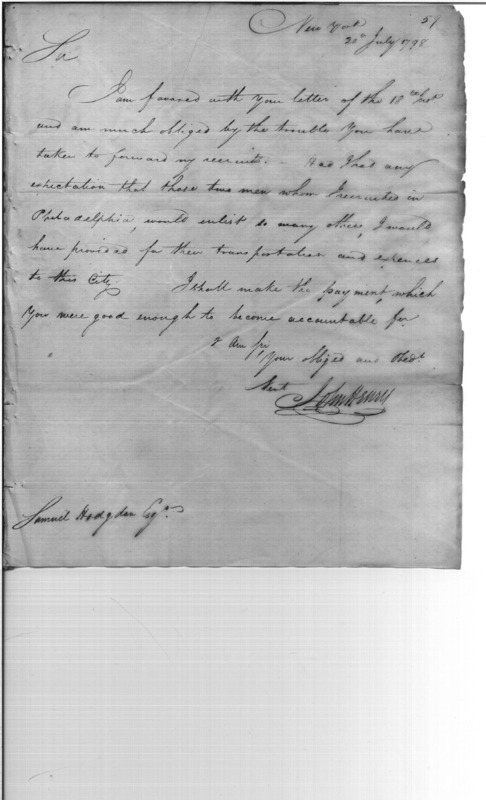 51
New York
20th July 1798
Sir
I am favored with your letter of the 18th Inst
and am much obliged by the trouble you have
taken to forward my recruits. - Had I had any
expectation that those two men whom I recruited in
Philadelphia, would enlist so many others, I would
have provided for their transportation and expences
to this City I shall make the payment, which
you were good enough to become accountable for.
I am Sir,
Your obliged and Obedt.
Servt
John Henry
Samuel Hodgdon Esqr.